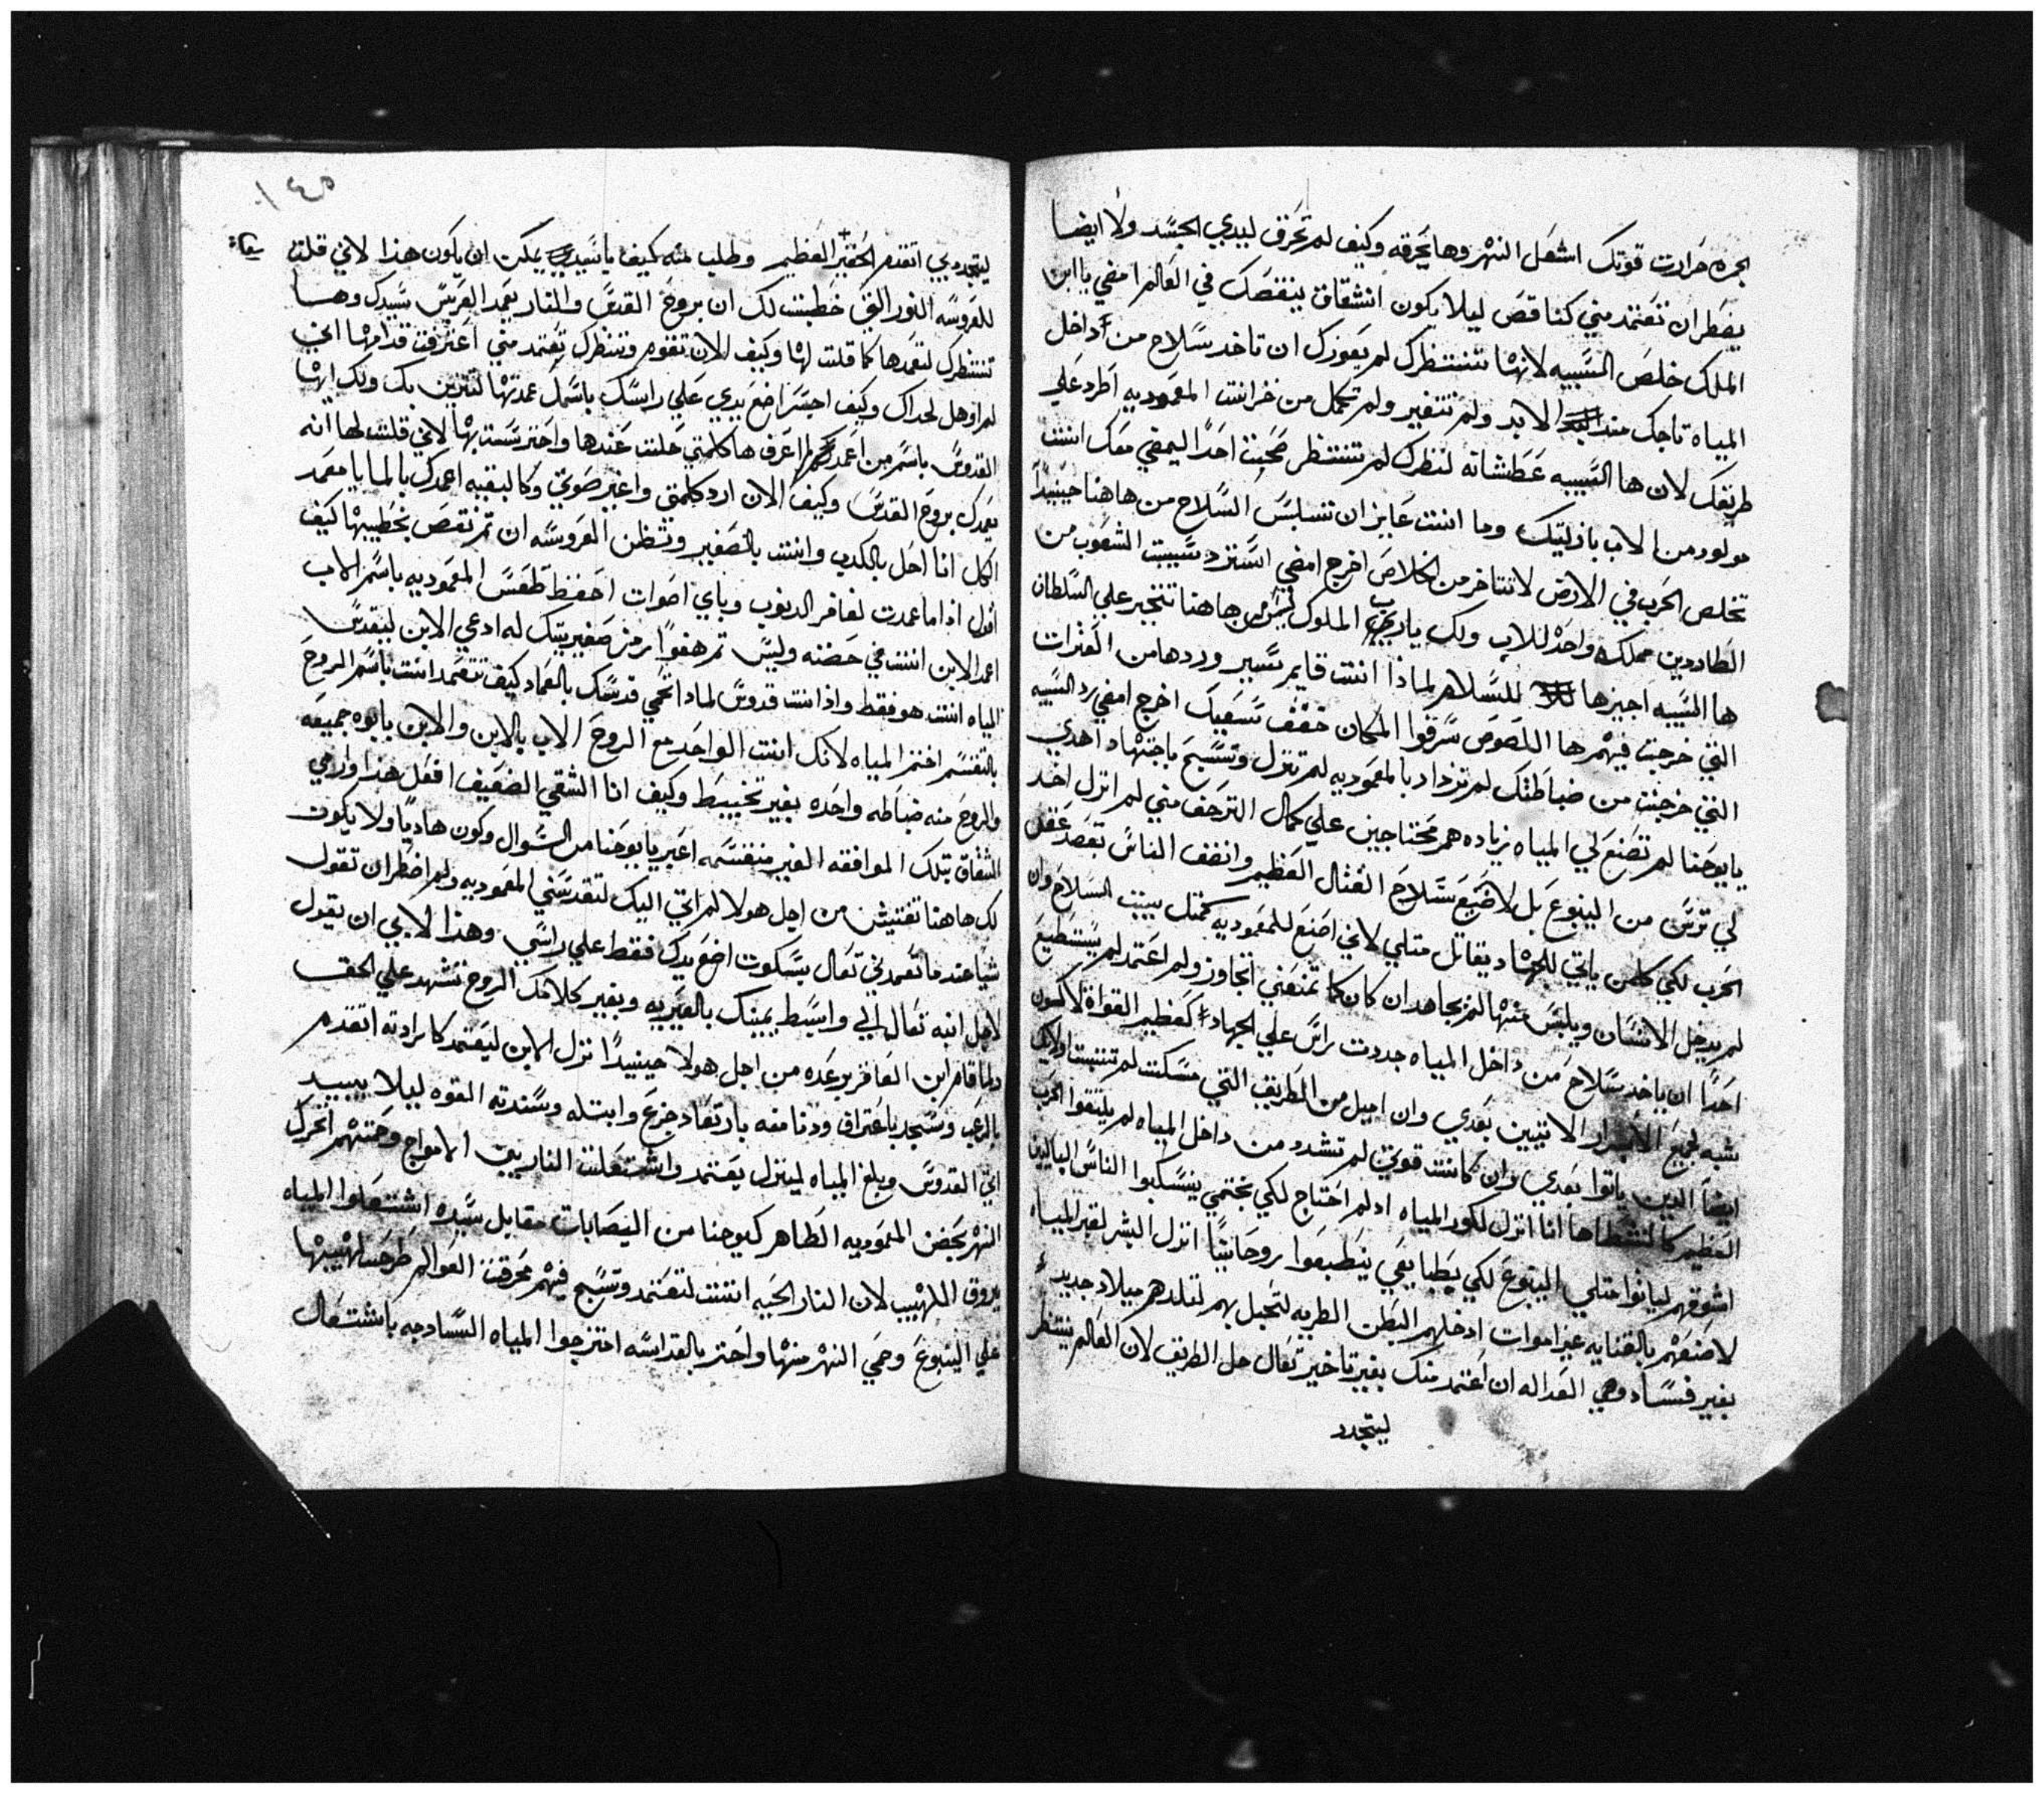 الجره حرارت قوتك اشعل النهر وها يحرقه وكيف لم تحرق ليدي الجسد ولا ايضا
يضطر ان تعتمد مني كناقص ليلا يكون انشقاق ينقصك في العالم امضي يا ابن
الملك خلص السبيه لانها تنتظرك لم يعوزك ان تاخد سلاح من داخل
المياه تاجك منذ الابد ولم تتغير ولم تكمل من خزانت المعموديه اطرد علي
طريقك لان ها السبيه عطشانه لنظرك لم تنتظر صحبت احدا ليمضي معك انت
مولود من الاب بازليتك وما انت عايز ان تلبس السلاح من هاهنا حينيدا
تخلص الحرب في الارض لا تتاخر من الخلاص اخرج امضي استرد سبيت الشعوب من
الطاردين مملكه واحده للاب ولك يارب الملوك من هاهنا تتجبر علي السلطان
ها السبيه اجيزها للسلام لماذا انت قايم تسير وردها من العثرات
التي خرجت فيهم ها اللصوص سرقوا المكان خفف تسعيك اخرج امضي رد السبيه
التي خرجت من ضباطتك لم تزداد بالمعموديه لم تنزل وتسبح باجتهاد اهدي
يا يوحنا لم تصنع لي المياه زياده هم محتاجين علي كمال الترحف مني لم انزل اخد
لي ترس من الينبوع بل لاضيع سلاح القتال العظيم وانضف الناس تقصد عقل
الحرب لكي كلمن ياتي للجهاد يقاتل متلي لاني اصنع للمعموديه كمتل بيت السلاح وان
لم يدخل الانسان ويلبس منها لم يجاهد ان كان كما تمنعني اتجاوز ولم اعتمد لم يستطيع
احدا ان ياخد سلاح من داخل المياه جددت راس علي الجهاد كعظيم القواه لاكون
شبه لجميع الابرار الاتيين بعدي وان اميل من الطريق التي مسكت لم تثبت اولايك
ايضا الدين ياتوا بعدي وان كانت قوتي لم تشدد من داخل المياه لم يلتقوا الحرب
العظيم كالنشطا ها انا انزل لكور المياه اد لم احتاج لكي بختمي ينسكبوا الناس الباليين
اشوقهم ليانوا متلي الينبوع لكي بطبايعي ينطبعوا روحانيا انزل البشر لقبر المياه
لاصنعهم بالقنايه غير اموات ادخلهم البطن الطريه لتحبل بهم لتلدهم ميلاد جديد
بغير فساد وهي العداله ان اعتمد منك بغير تاخير تعال حل الطريق لان العالم ينتظر
ليتجدد
ليتجدد بي اتقدم الحقير العظيم وطلب منه كيف يا سيدي يمكن ان يكون هذا لاني قلت
للعروسه النور التي خطبت لك ان بروح القدس والنار يعمد العريس سيدك وها
تنتظرك لتعمدها كما قلت لها وكيف الان تقوم وتنظرك تعتمد مني اعترفت قدامها اني
لم اوهل لحداك وكيف اجسر اضع يدي علي راسك باسمك عمدتها لتتزين بك ولك ايها
القدوس باسم من اعمدك لم اعرف ها كلمتي حلت عندها واحترست بها لاني قلت لها انه
يعمدك بروح القدس وكيف الان ارد كلمتي واغير صوتي وكالبقيه اعمدك بالما يا معمد
الكل انا احل بالكدب وانت بالصغير وتظن العروسه ان تم نقص بخطيبها كيف
اقول اذا ما عمدت لغافر الدنوب وباي اصوات احفظ طقس المعموديه باسم الاب
اعمد الابن انت في حضنه وليس تم هفوا رمز صغير بيتك له ادعي الابن ليقدس
المياه انت هو فقط واذا انت قدوس لمادا تحمي قدسك بالعماد كيف تتعمد انت باسم الروح
بالتقسم اختم المياه لانك انت الواحد مع الروح الاب بالابن والابن بابوه جميعه
والروح منه ضباطه واحده بغير تخييط وكيف انا الشقي الضعيف افعل هذا وارمي
الشقاق بتلك الموافقه الغير منقسمه اعبر يا يوحنا من السوال وكون هاديا ولا يكون
لك هاهنا تفتيش من اجل هولا لم اتي اليك لتقدسني المعموديه ولم اضطر ان تقول
شيا عندما تعمدني تعال بسكوت اضع يدك فقط علي راسي وهذا لابي ان يقول
لاجل ابنه تعال الي وابسط يمينك بالغيريه وبغير كلامك الروح تشهد علي الحق
ولما قام ابن العاقر يرعده من اجل هولا حينيدا نزل الابن ليعتمد كارادته اتقدم
بالرعب وسجد باعتراف ودنا معه بارتعاد جزع وابتله وسندته القوه ليلا يبيد
اتي القدوس وبلغ المياه لينزل يعتمد واشتعلت النار بين الامواج وحتهم اتحرك
النهر بحض المعموديه الطاهر كيوحنا من اليصابات مقابل سيده اشتعلوا المياه
بروق اللهيب لان النار الحيه اتت لتعتمد وتسبح فيهم محرقت العوالم طرحت لهيبها
علي الينبوع وحمي النهر منها واحتر بالقداسه امتزجوا المياه السادجه باشتعال